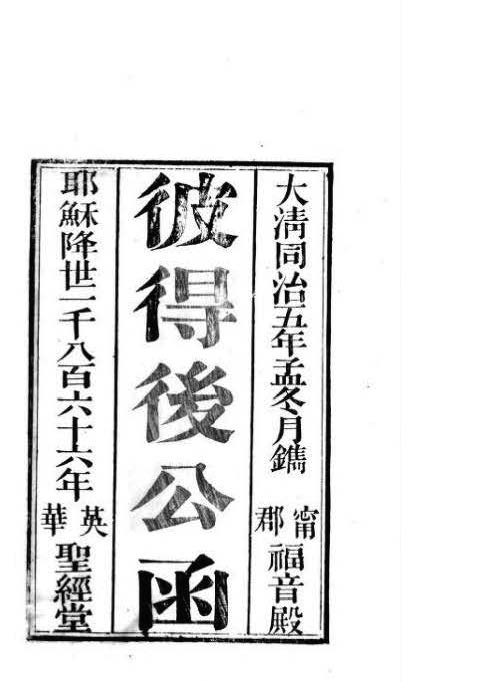 大清同治五年孟冬月鐫 甯郡福音殿
彼得後公函
耶穌降世一千八百六十六年 英華聖經堂